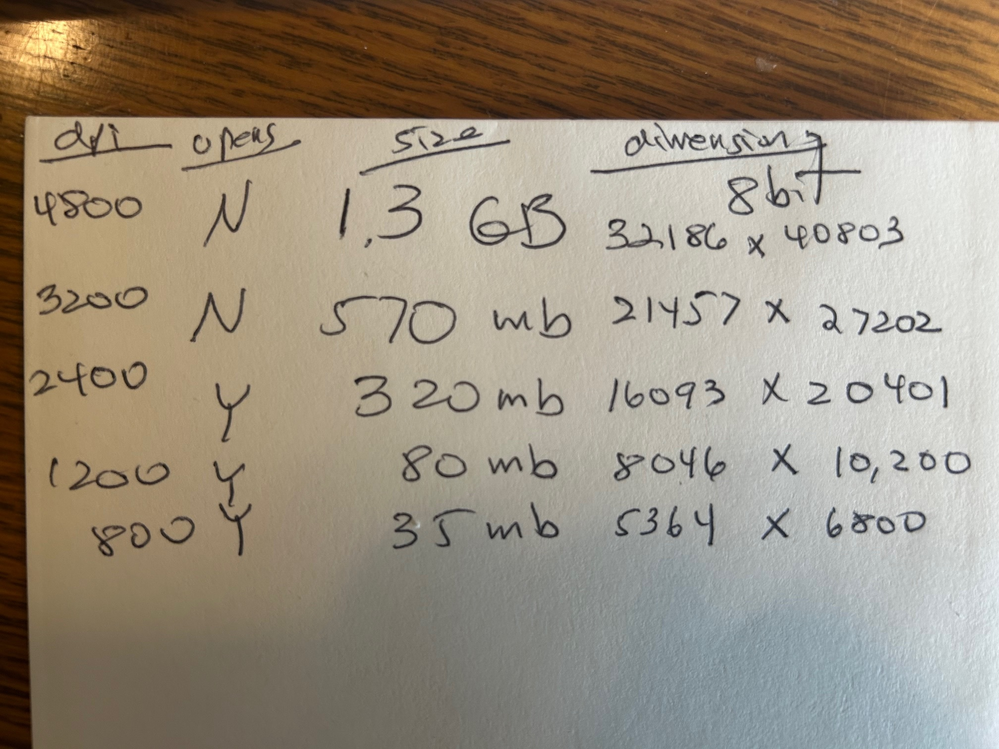 dpi opens size dimensions
8bit
4800 N 1.3 GB 32186 x 40803
3200 N 570 mb 21457 x 27202
2400 Y 320 mb 16093 x 20401
1200 Y 80 mb 8046 x 10,200
800 Y 35 mb 5364 x 6800